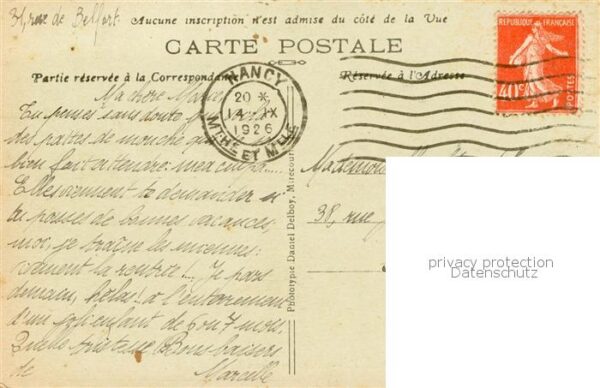 31, rue de Belfort.
Aucune inscription n'est admise du côté de la Vue
CARTE POSTALE
Partie réservée à la Correspondance
Réservée à l'Adresse
REPUBLIQUE FRANÇAISE
40c
POSTES
NANCY
20 *
14 IX
1926
MTHE ET MLLE
Ma chère Marie
Tu penses sans doute
des pattes de mouche que
bien fait attendre: mea culpa....
Elles viennent te demander si
tu passes de bonnes vacances,
moi, je traîne les miennes:
vivement la rentrée.... Je pars
demain, hélas! à l'enterrement
d'un joli enfant de 6 ou 7 mois
Quelle tristesse! Bons baisers
de Marcelle
Phototypie Daniel Delboy, Mirecourt
Mademoi
38, rue
privacy protection
Datenschutz